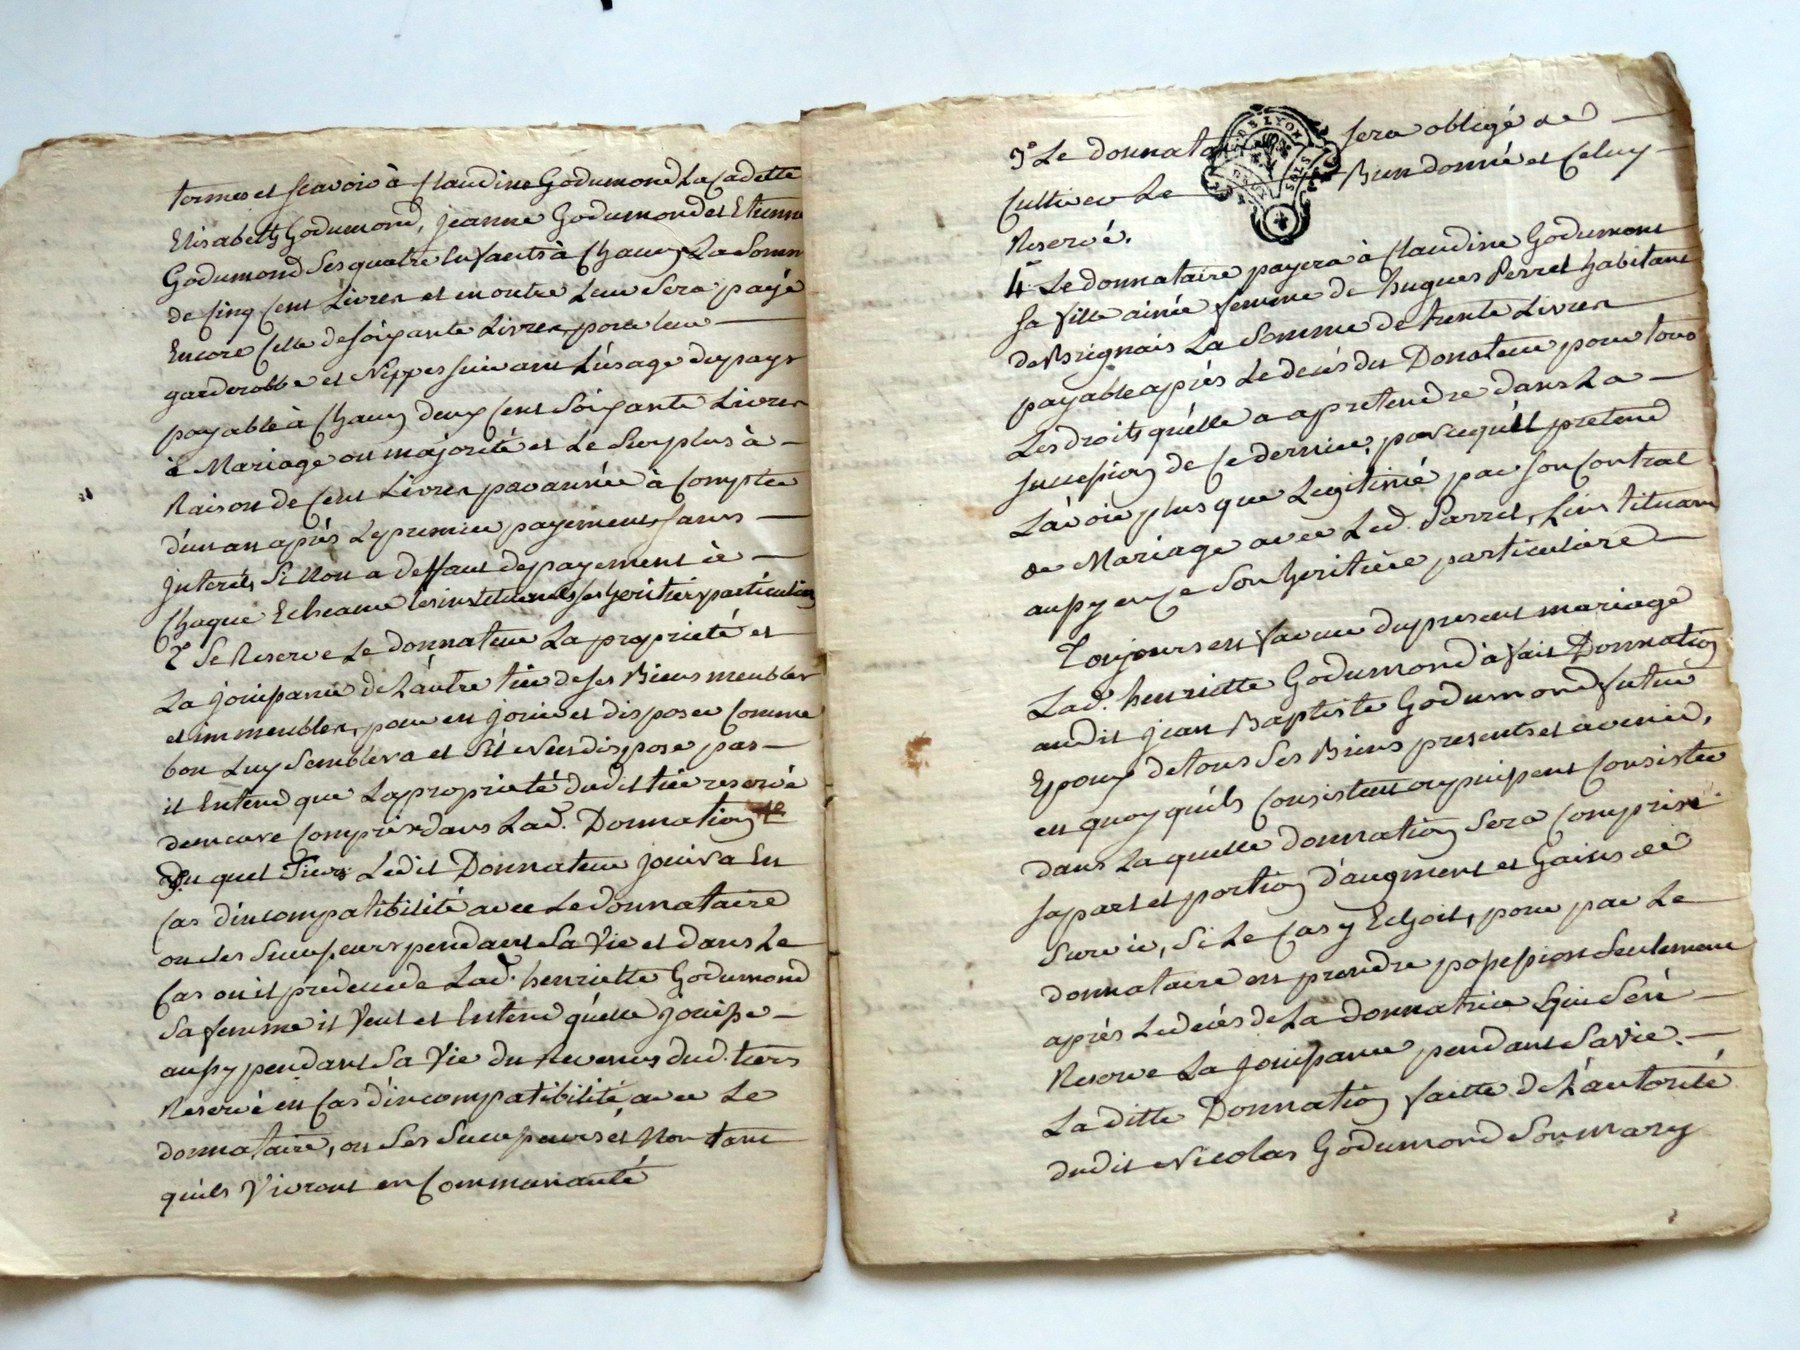 termes et scavoir à Claudine Godumond La Cadette
Elisabeth Godumond, jeanne Godumond et Etienne
Godumond Ses quatre Enfants à Chacun La Somm
de Cinq Cent Livres et en outre Leur Sera payé
Encore Celle de soixante Livres pour leur
garderobbe et Nippes suivant L'usage du pays
payable à Chacun deux Cent Soixante Livres
à Mariage ou majorité et Le Surplus à
Raison de Cent Livres par année à Compter
d'un an après Le premier payement sans
Interêt, Si Non a deffaut de payement à
Chaque Echeance les instituant ses heritiers particuliers
2° Se Reserve Le donnateur La proprieté et
La jouissance de L'autre tier de ses Biens meubles
et immeubles, pour en jouir et disposer Comme
bon Luy Semblera et S'il n'en dispose pas
il Entend que La proprieté dudit tier reservé
demeure Compris dans Lad. Donnation
Du quel Tiers Ledit Donnateur jouira En
Cas d'incompatibilité avec Le donnataire
ou Ses Successeurs pendant Sa Vie et dans Le
Cas ou il predecede Lad. henriette Godumond
Sa femme il Veut et Entend qu'elle jouisse
aussy pendant Sa Vie du Revenus dud. tiers
Reservé en Cas d'incompatibilité avec Le
donnataire, ou Ses Successeurs et Non tant
qu'ils Vivront en Communauté
3° Le donnataire sera obligé de
Cultiver Le Bien donné et Celuy
Reservé.
4° Le donnataire payera à Claudine Godumond
sa fille ainée femme de hugues Perret habitant
de Brignais La Somme de trente Livres
payable après Le decés du Donateur pour tous
Les droits qu'elle a a pretendre dans La
succession de Ce dernier, parcequ'il pretend
L'avoir plus que Legitimé par son Contrat
de Mariage avec Led. Parret, L'instituant
aussy en ce Son heritière particuliere
Toujours en faveur du present mariage
Lad. henriette Godumond à fait Donnation
audit jean Baptiste Godumond futur
Epoux de tous Ses Biens presents et avenir,
en quoy qu'ils Consistent ou puissent Consister
dans La quelle donnation Sera Comprise
sa part et portion d'augment et Gains de
Survie, Si Le Cas y Echoit, pour par Le
donnataire en prendre possession Seulement
après Le decés de La donnatrice qui S'en
Reserve La jouissance pendant Sa vie.
La ditte Donnation faitte de L'autorité
dudit Nicolas Godumond Son mary